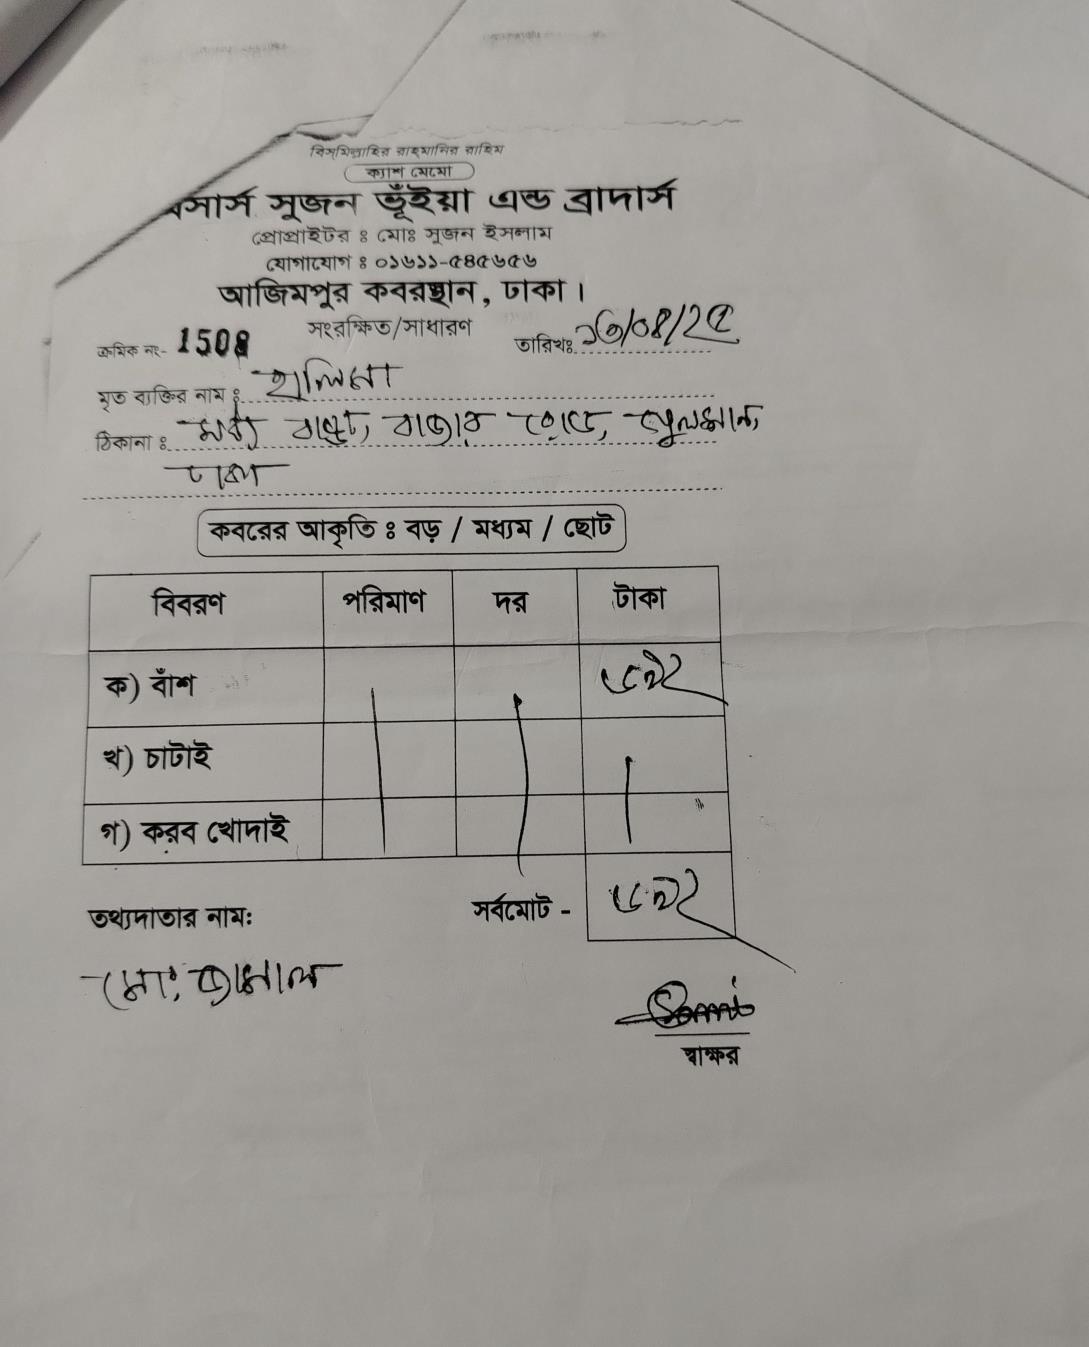 বিসমিল্লাহির রাহমানির রাহিম
ক্যাশ মেমো
সার্স সুজন ভূঁইয়া এন্ড ব্রাদার্স
প্রোপ্রাইটর ঃ মোঃ সুজন ইসলাম
যোগাযোগ ঃ ০১৬১১-৫৪৫৬৫৬
আজিমপুর কবরস্থান, ঢাকা।
সংরক্ষিত/সাধারণ
ক্রমিক নং- 1508 তারিখঃ
মৃত ব্যক্তির নাম ঃ হালিমা
ঠিকানা ঃ মধ্য বাড্ডা, বাজার রোড, গুলশান,
ঢাকা
কবরের আকৃতি ঃ বড় / মধ্যম / ছোট
বিবরণ পরিমাণ দর টাকা
ক) বাঁশ
খ) চাটাই
গ) করব খোদাই
তথ্যদাতার নাম: সর্বমোট -
মোঃ কামাল
স্বাক্ষর